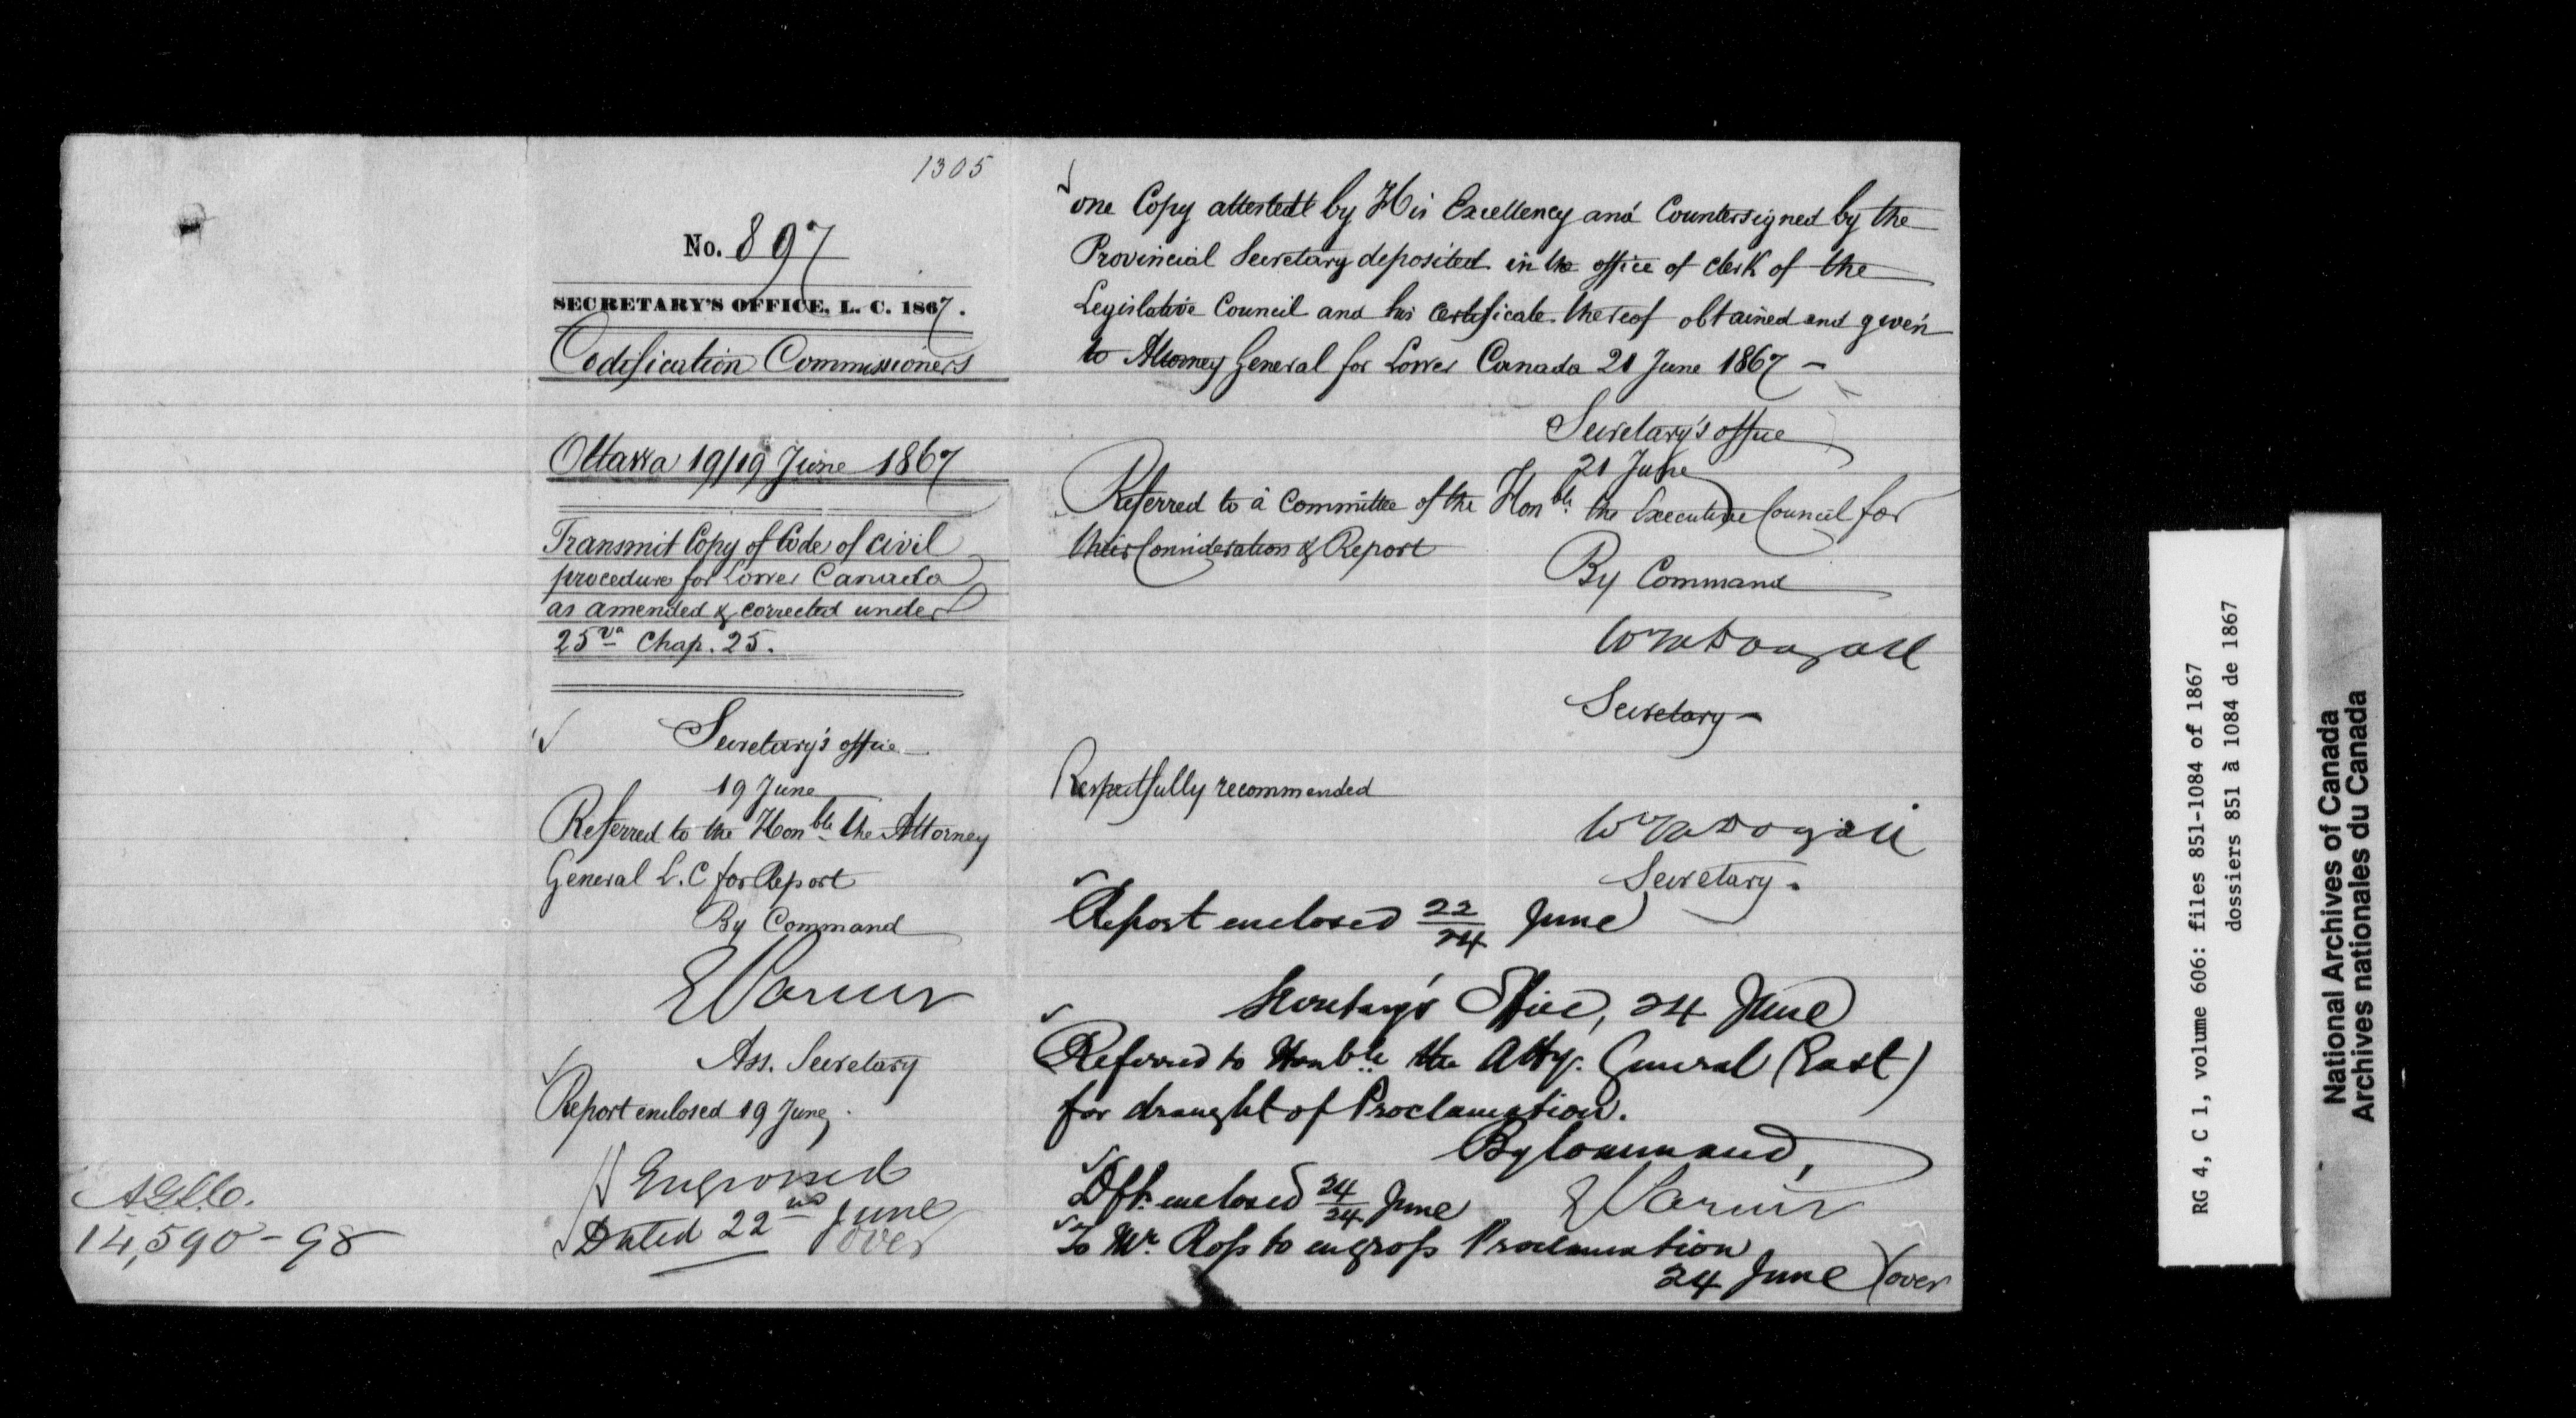 1305
No. 897
SECRETARY'S OFFICE, L. C. 1867.
Codification Commissioners
Ottawa 19/19 June 1867
Transmit Copy of Code of civil
procedure for Lower Canada
as amended & corrected under
25 Va Chap. 25.
Secretary's office
19 June
Referred to the Honble the Attorney
General L.C for Report
By Command
E Parent
Ass. Secretary
Report enclosed 19 June.
Engrossed
Dated 22nd June
over
14,590-98
one Copy attested by His Excellency and Countersigned by the
Provincial Secretary deposited in the office of clerk of the
Legislative Council and his certificate thereof obtained and given
to Attorney General for Lower Canada 21 June 1867 -
Secretary's office
21 June
Referred to a Committee of the Honble the Executive Council for
their Consideration & Report
By Command
Wm McDougall
Secretary -
Respectfully recommended
Wm McDougall
Secretary.
Report enclosed 22/24 June
Secretary's Office, 24 June
Referred to Honble the Atty. General (East)
for draught of Proclamation.
By Command,
E Parent
Dft. enclosed 24/24 June
To Mr. Ross to engross Proclamation
24 June (over
RG 4, C 1, volume 606: files 851-1084 of 1867
dossiers 851 à 1084 de 1867
National Archives of Canada
Archives nationales du Canada